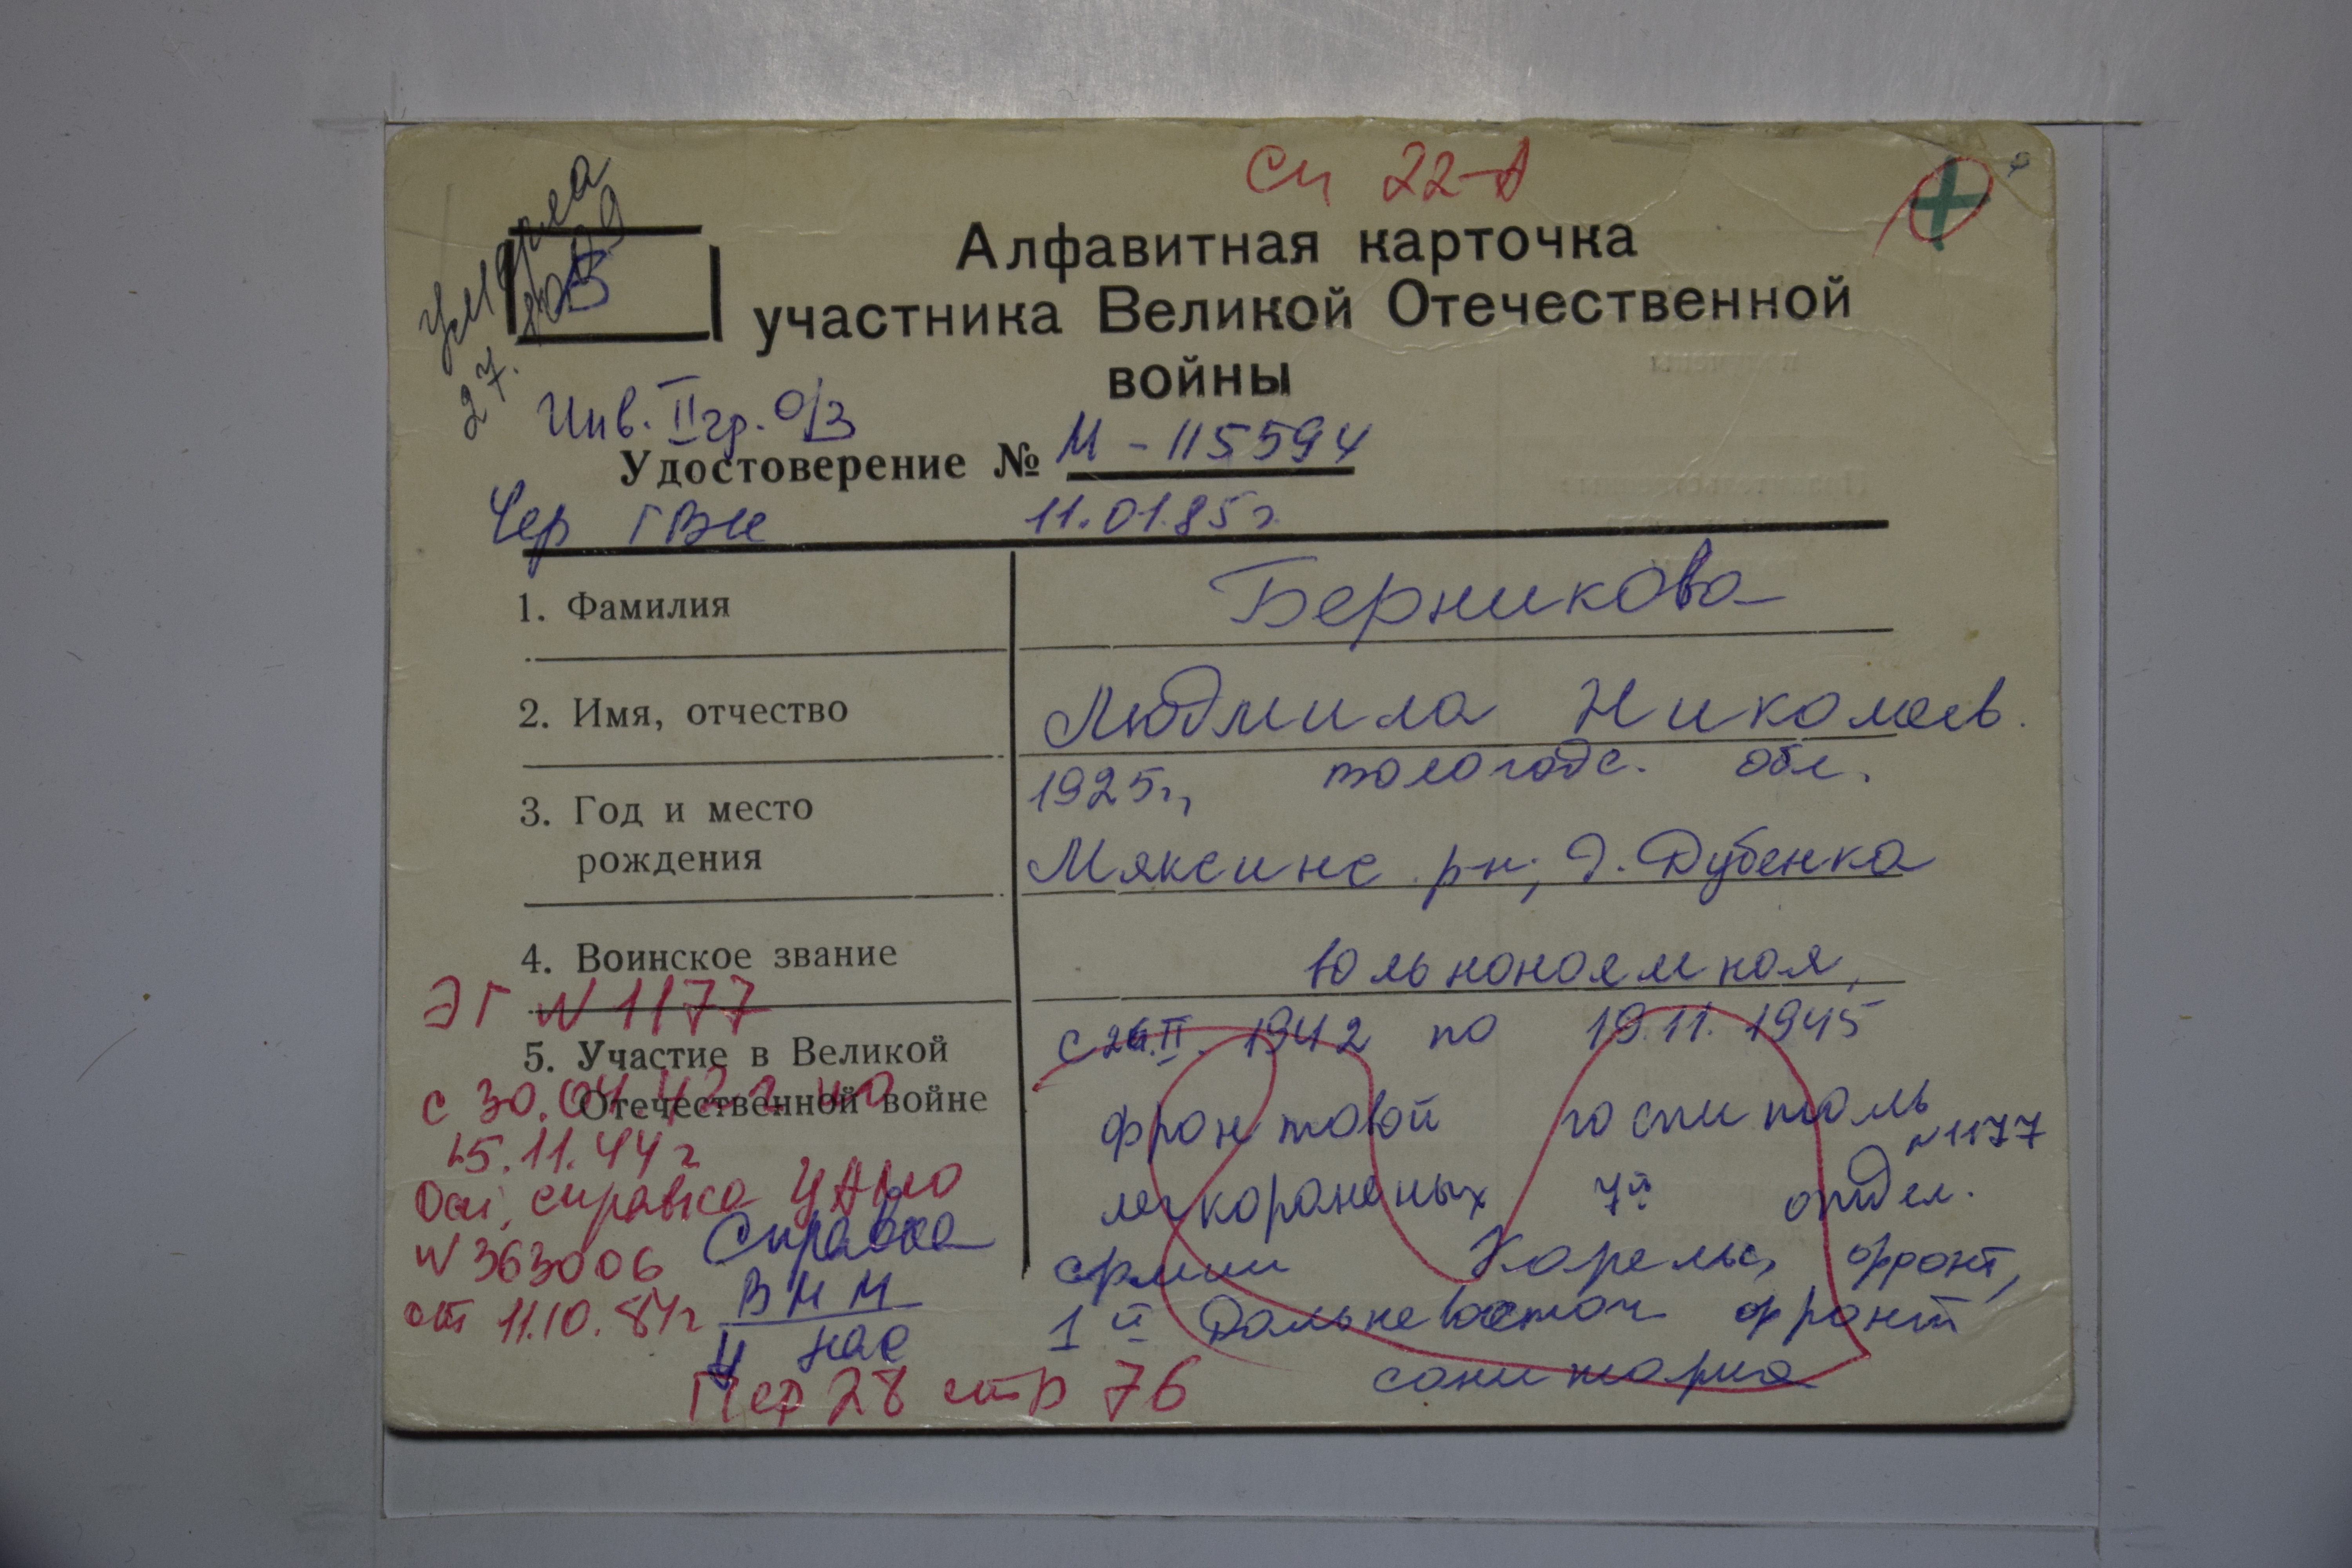 СМ 22-А
умерла
27.
В
Алфавитная карточка
участника Великой Отечественной
войны
Инв. II гр. О/З
Удостоверение № М - 115594
Чер ГВК 11.01.85 г.
1. Фамилия Берникова
2. Имя, отчество Людмила Николаев.
3. Год и место 1925 г., Вологодс. обл.
рождения Мяксинс р-н, д. Дубенка
4. Воинское звание Вольнонаемная,
ЭГ N 1177
5. Участие в Великой с 26.II. 1942 по 19.11.1945
Отечественной войне фронтовой госпиталь
с 30.04.42 г по N 1177
15.11.44 г легкораненых 7й отдел.
Осн. справка ЦАМО
N 363006 Справка армии Карельс, фронт,
от 11.10.84 г ВММ 1й Дальневосточ фронт
у нас санитарка
Пер 28 стр 76